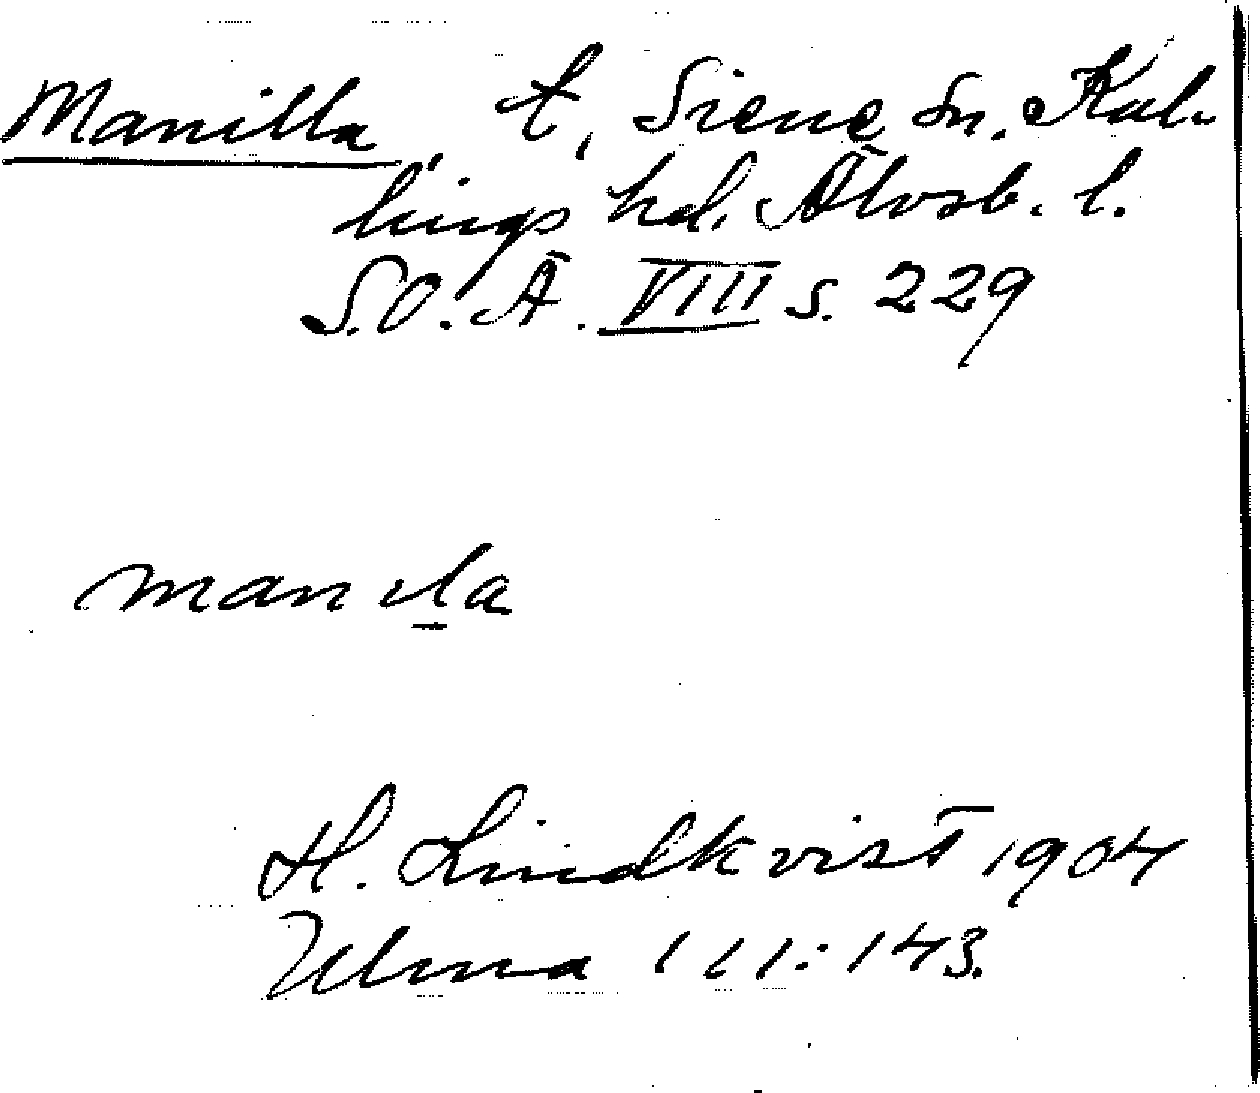 Manilla t, Siene sn. Kul-
lings hd. Älvsb. l.
S.O.Ä. VIII s. 229
manıla
H. Lindkvist 1904
Ulma 111:143.